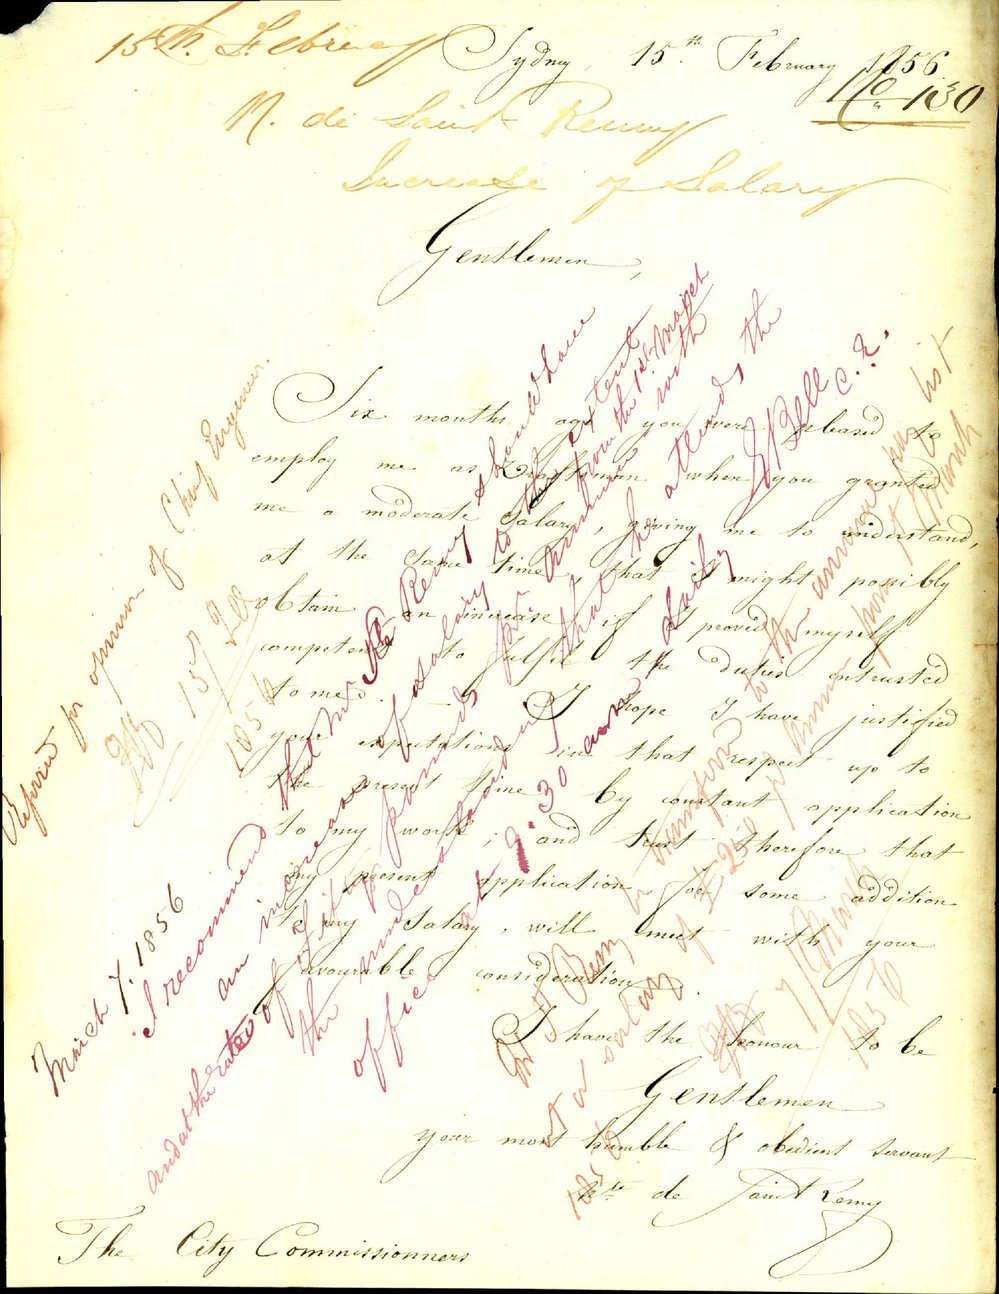 15th. February
Sydney, 15th. February 1856.
No. 130
N. de Saint Remy
Increase of Salary
Gentlemen,
Six months ago you were pleased to
employ me as Draftsman when you granted
me a moderate Salary, giving me to understand,
at the same time, that I might possibly
obtain an increase if I proved myself
competent to fulfil the duties entrusted
to me. — I hope I have justified
your expectations in that respect up to
the present time by constant application
to my work; and trust therefore that
my present application for some addition
to my Salary, will meet with your
favourable consideration.
I have the honour to be
Gentlemen
your most humble & obedient servant
de Saint Remy
The City Commissionners
Referred for opinion of Chief Engineer.
15/ Feb
1856
March 7. 1856
I recommend that Mr St Remy should have
an increase of salary to the extent
and at the rate of fifty pounds pr annum from the 1st March
the understanding that he attends the
office at 9.30 am daily
E Bell C.E.
Mr St Remy be transferred to the annual pay list
at a salary of £250 pr annum from 1st March
1856
7/ March
1856